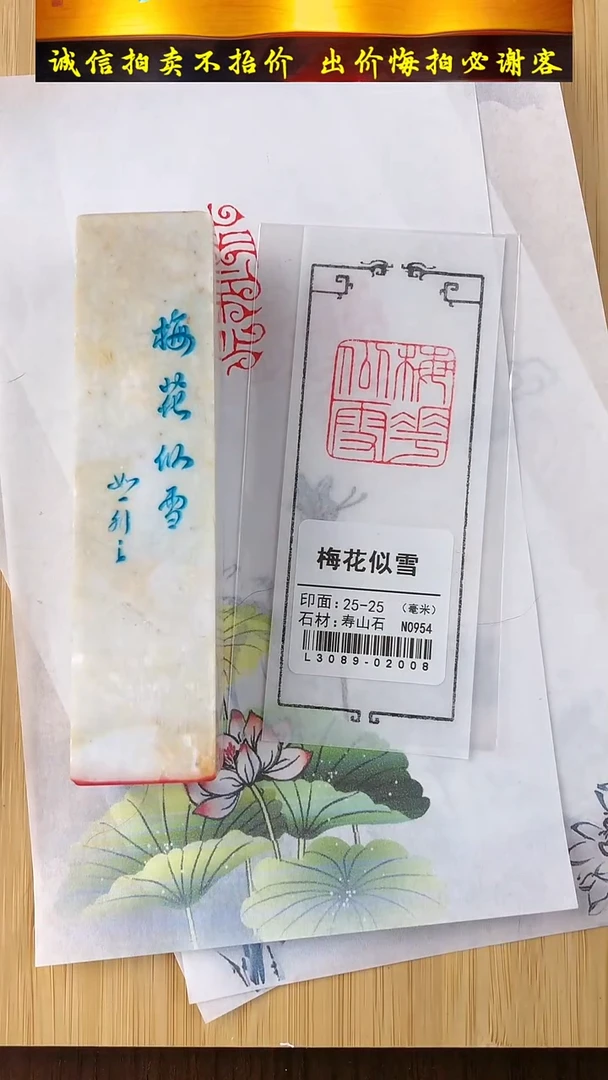 诚信拍卖不抬价 出价悔拍必谢客
梅花似雪
如一刊之
梅花
似雪
梅花似雪
印面：25-25 （毫米）
石材：寿山石 NO954
L3089-02008